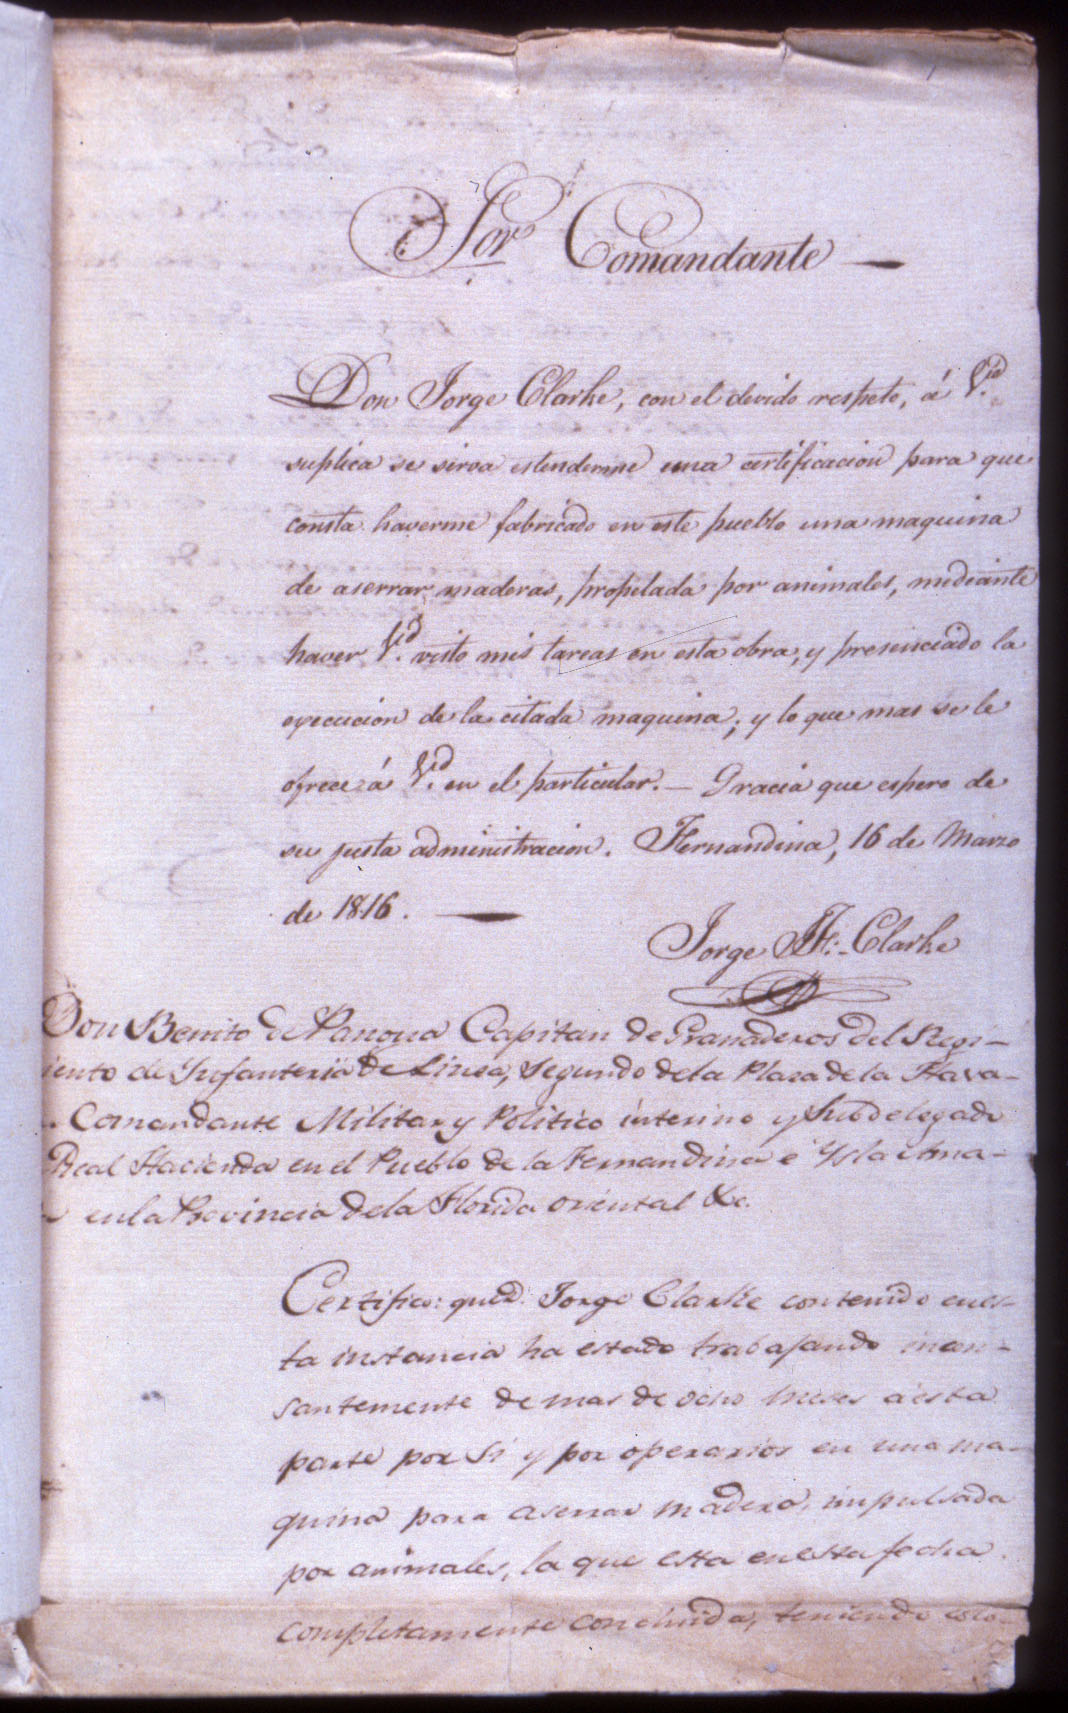 Sor Comandante
Don Jorge Clarke, con el devido respeto, á V.md
suplica se sirva estenderme una certificacion para que
consta haverme fabricado en este pueblo una maquina
de aserrar maderas, propelada por animales, mediante
haver V.md visto mis tareas en esta obra, y presenciado la
execucion de la citada maquina; y lo que mas se le
ofrece á V.md en el particular. — Gracia que espero de
su justa administracion. Fernandina, 16 de Marzo
de 1816. —
Jorge J. F. Clarke
Don Benito de Panoya Capitan de Granaderos del Regi-
iento de Ynfanteria de Linea, Segundo de la Plaza de la Hava-
Comandante Militar y Politico interino y Subdelegado
Real Hacienda en el Pueblo de la Fernandina é Ysla Ama-
en la Provincia de la Florida oriental &c.
Certifico: que D. Jorge Clarke contenido en es-
ta instancia ha estado trabajando incan-
santemente de mas de ocho meses á esta
parte por Si y por operarios en una ma-
quina para aserrar madera, impulsada
por animales, la que esta en esta fecha
completamente concluida, teniendo